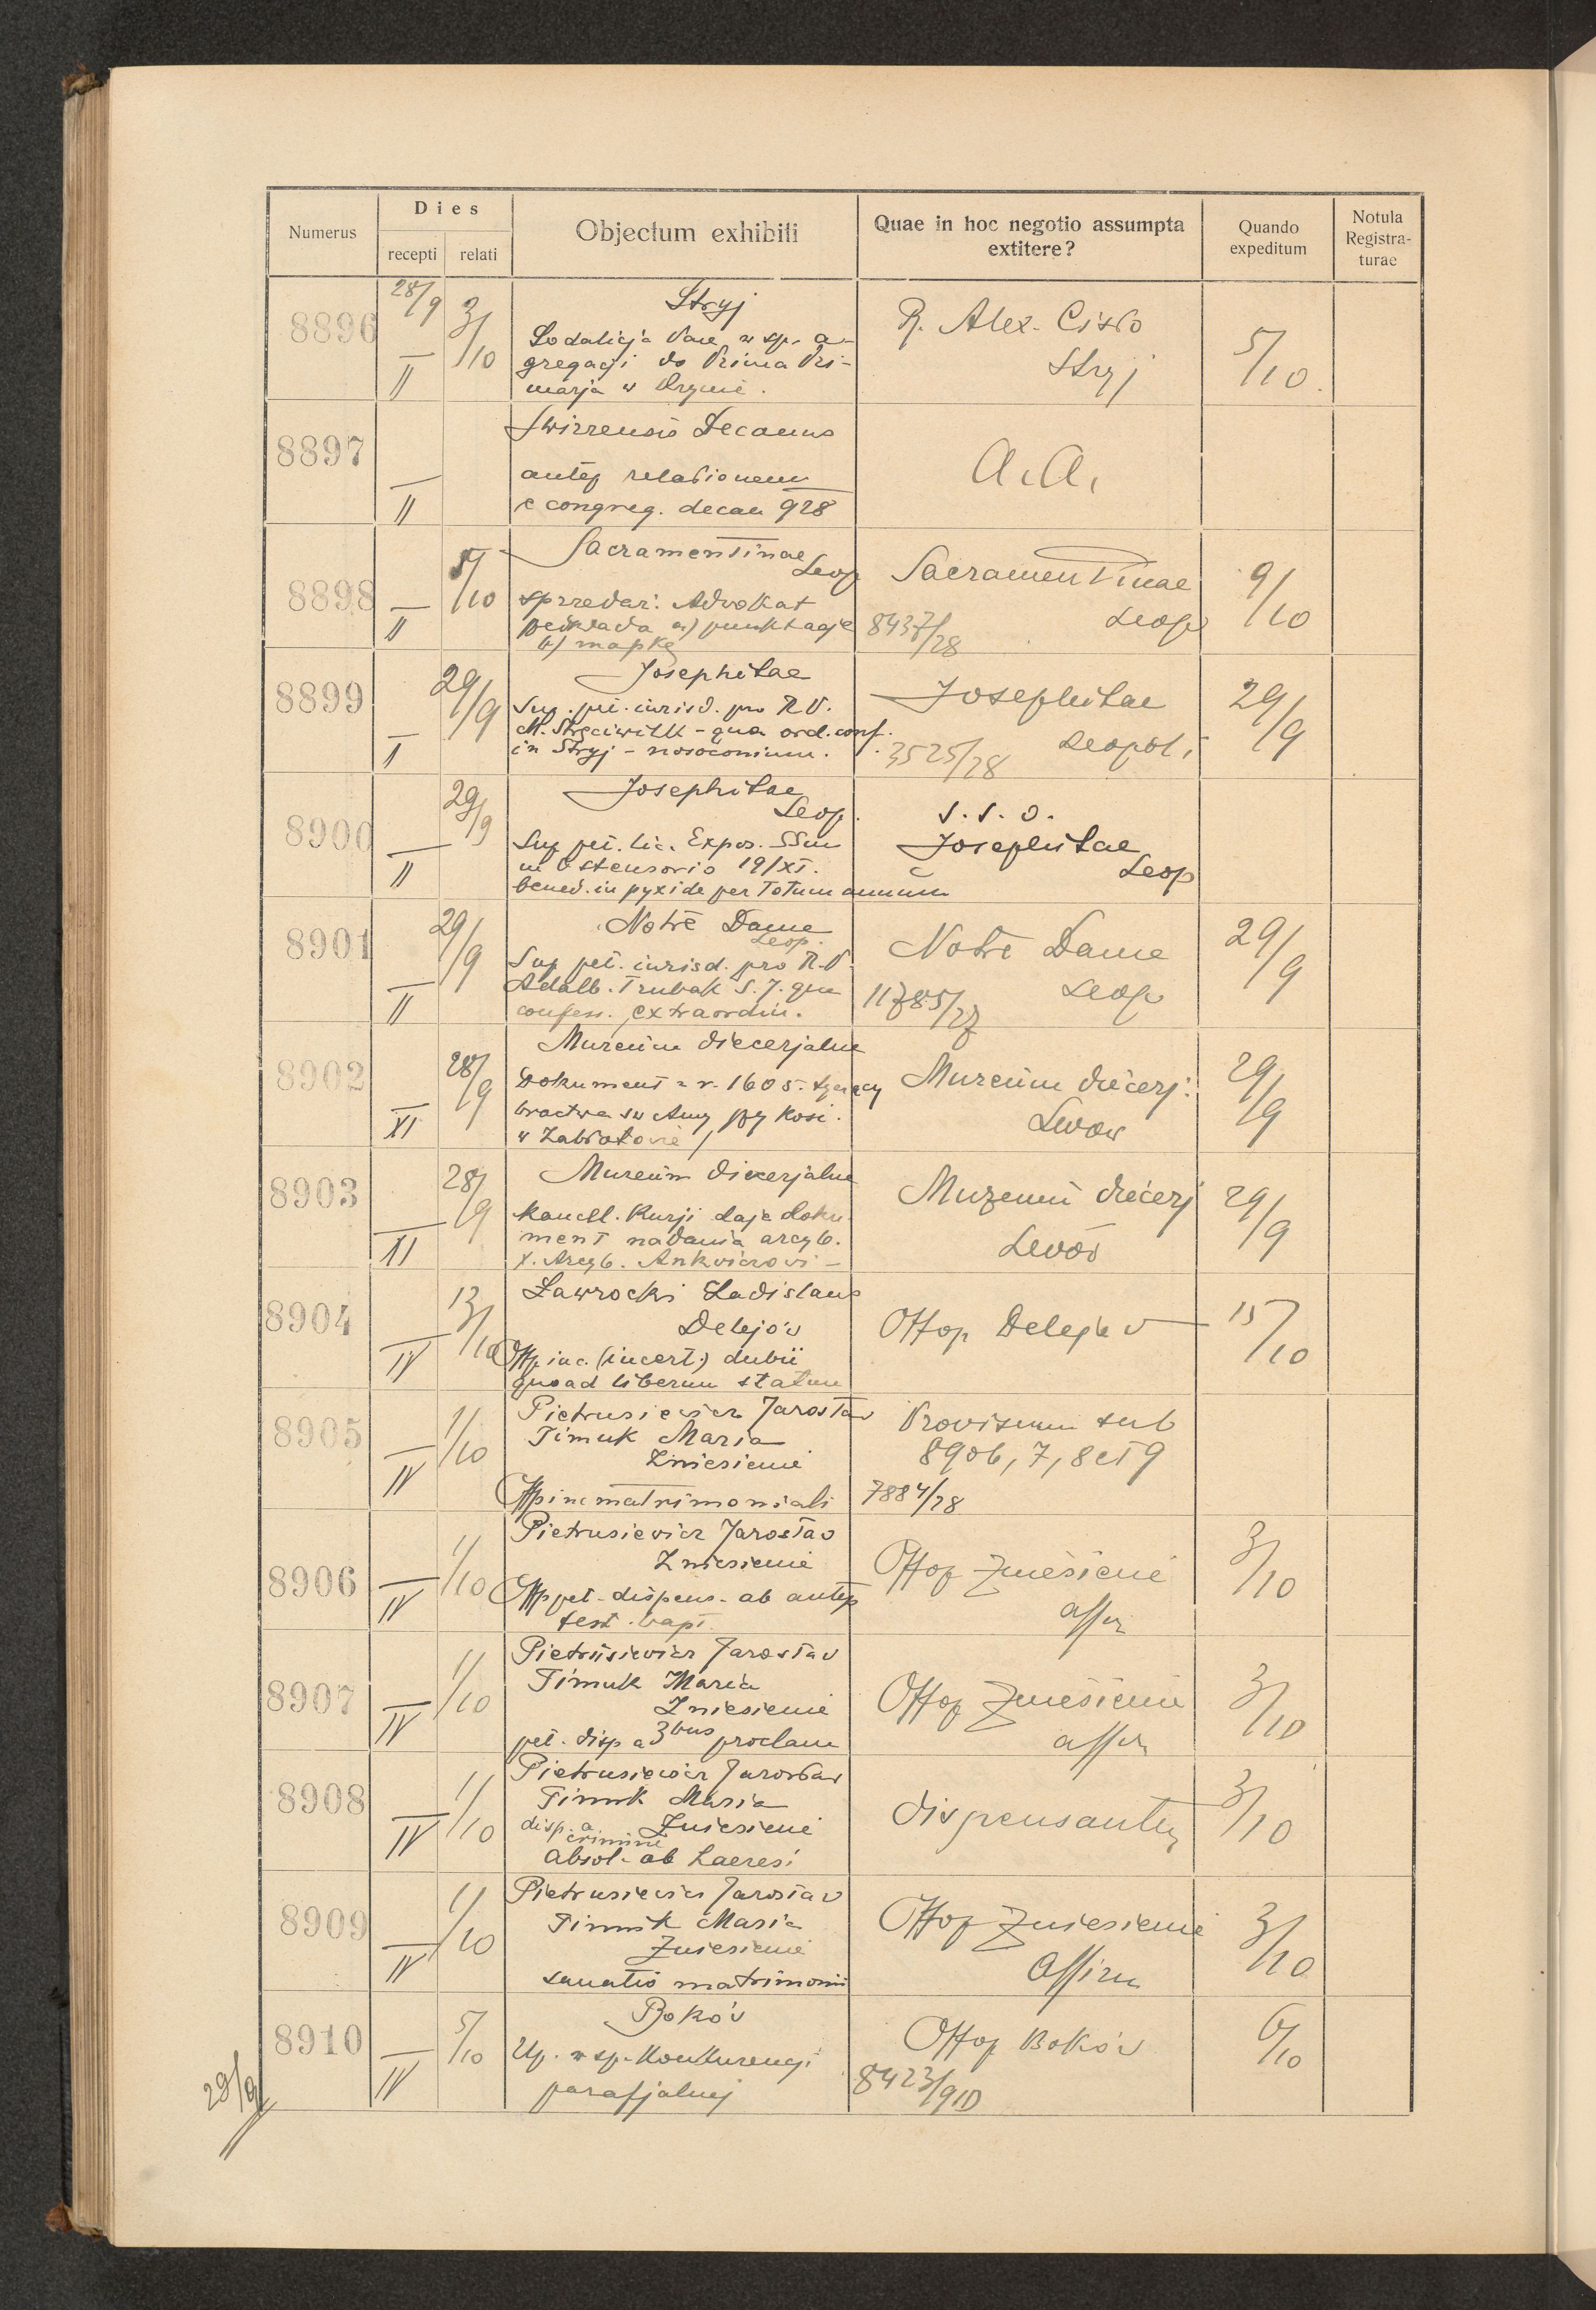 Numerus
Dies
recepti
relati
Objectum exhibiti
Quae in hoc negotio assumpta
extitere?
Quando
expeditum
Notula
Registra-
turae
8896
28/9
II
3/10
Stryj
Sodalicja Pań w sp. a-
gregacji do Prima Pri-
marja w Rzymie.
R. Alex. Cisło
Stryj
5/10.
8897
II
Swirzensis Decanus
relationem
e congreg. decan 928
a.a.
8898
II
5/10
Sacramentinae
Leop
sprzedaż: Advokat
a) punktacje
b) mapkę
Sacramentinae
Leop
8437/28
9/10
8899
II
29/9
Josephitae
Sup. pet. iurisd. pro R.P.
qua ord. conf.
in Stryj - nosoconium.
Josephitae
Leopoli
3525/28
29/9
8900
II
29/9
Josephitae
Leop.
Sup pet. lic. Expos. SSmi
in Ostensorio 19/XI.
bened. in pyxide per totum annum
s.s.o.
Josephitae
Leop
8901
II
29/9
Notre Dame
Leop.
Sup pet. iurisd. pro R.P.
Adalb. Trubak S.J. qua
confess. extraordin.
Notre Dame
Leop
11785/27
29/9
8902
XI
28/9
Muzeum diecezjalne
Dokument z r. 1605. tyczący
bractwa św Anny przy kość.
w Zabłotowie
Muzeum diecezj:
Lwów
29/9
8903
XI
28/9
Muzeum diecezjalne
kancel. Kurji daje doku
ment nadania arcyb.
X. Arcyb. Ankwiczowi -
Muzeum diecezj
Lwów
29/9
8904
IV
13/10
Ławrocki Ladislaus
Delejów
Offp inc. (incert.) dubii
quoad liberum statum
Offop Delejów
15/10
8905
IV
1/10
Pietrusiewicz Jarosław
Timuk Maria
Zniesienie
Offp in c matrimoniali
Provisum sub
8906, 7, 8 et 9
7884/28
8906
IV
1/10
Pietrusiewicz Jarosław
Zniesienie
Offp pet. dispens. ab
test. bapt.
Offop Zniesienie
affir
3/10
8907
IV
1/10
Pietrusiewicz Jarosław
Timuk Maria
Zniesienie
pet. disp a 3bus proclam
Offop Zniesienie
affir
3/10
8908
IV
1/10
Pietrusiewicz Jarosław
Timuk Maria
disp. a Zniesienie
crimine
absol. ab haeresi
dispensantur
3/10
8909
IV
1/10
Pietrusiewicz Jarosław
Timuk Maria
Zniesienie
sanatio matrimonii
Offop Zniesienie
Affirm
3/10
8910
IV
5/10
Boków
Up. w sp. Konkurencji
parafjalnej
Offop Boków
8423/910
6/10
29/9